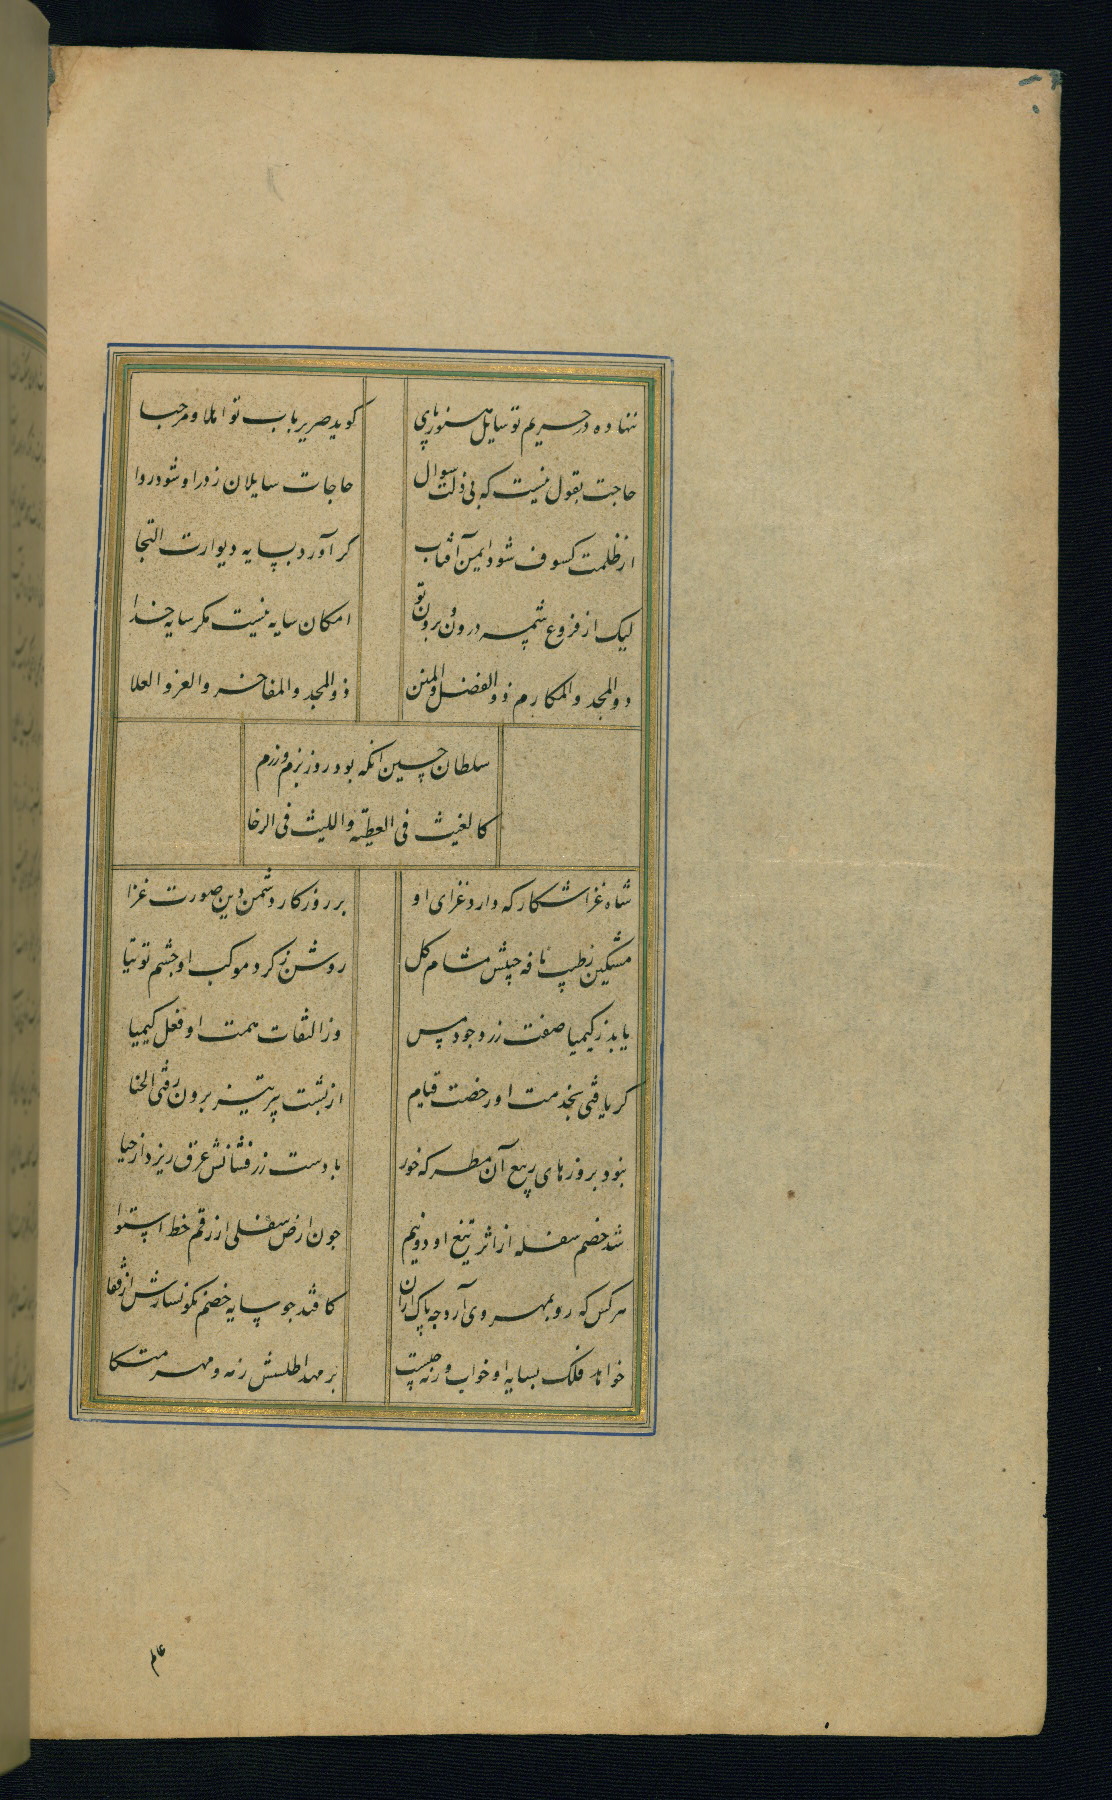 ننهاده در حریم تو سایل هنوز پای
کوید صریر باب تو اهلا و مرحبا
حاجت بقول نیست که بی ذلت سوال
حاجات سایلان ز در او شود روا
از ظلمت کسوف شود ایمن آفتاب
کر آورد بسایه دیوارت التجا
لیک از فروغ شمسه درون و برون تو
امکان سایه نیست مکر سایه خدا
ذو المجد والمکارم ذو الفضل والمنن
ذو المجد والمفاخر والعز والعلا
سلطان حسین انکه بود روز بزم و رزم
کالغیث فی العطیه واللیث فی الرخا
شاه غزا شکار که دارد غزای او
بر روزکار دشمن دین صورت عزا
مشکین ز طیب نافه جیبش مشام کل
روشن ز کرد موکب او جشم توتیا
یابد ز کیمیا صفت زر وجود مس
وز التفات همت او فعل کیمیا
کر یافتی بخدمت او رخصت قیام
از پشت پیر تیز برون رفتی انحنا
نبود بروزهای ربیع آن مطر که خور
با دست زرفشانش عرق ریزد از حیا
شد خصم سفله از اثر تیغ او دو نیم
جون ارض سفلی از رقم خط استوا
هر کس که رو بمهر وی آرد جه باک ازان
کافتد جو سایه خصم نکونسارش از قفا
خواند فلک بسایه او خواب ورنه جیست
بر مهد اطلسش ز مه و مهر متکا